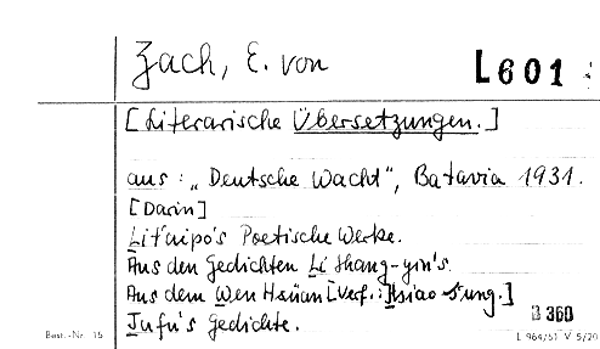 Zach, E. von
L601
[Literarische Übersetzungen.]
aus: „Deutsche Wacht", Batavia 1931.
[Darin]
Lit'aipo's Poetische Werke.
Aus den Gedichten Li Shang-yin's.
Aus dem Wen Hsüan [Verf.: Hsiao T'ung.]
Tufu's Gedichte.
B 360
Best.-Nr. 15
L 964/51 V 5/20